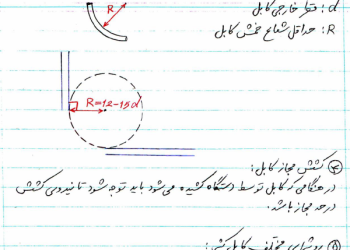 d: قطر خارجی کابل
R
R: حداقل شعاع خمش کابل
R=12-15d
④ کشش مجاز کابل:
در هنگامی که کابل توسط دستگاه کشیده می شود باید توجه شود تا نیروی کشش
در حد مجاز باشد.
روشهای مختلف کابل کشی: